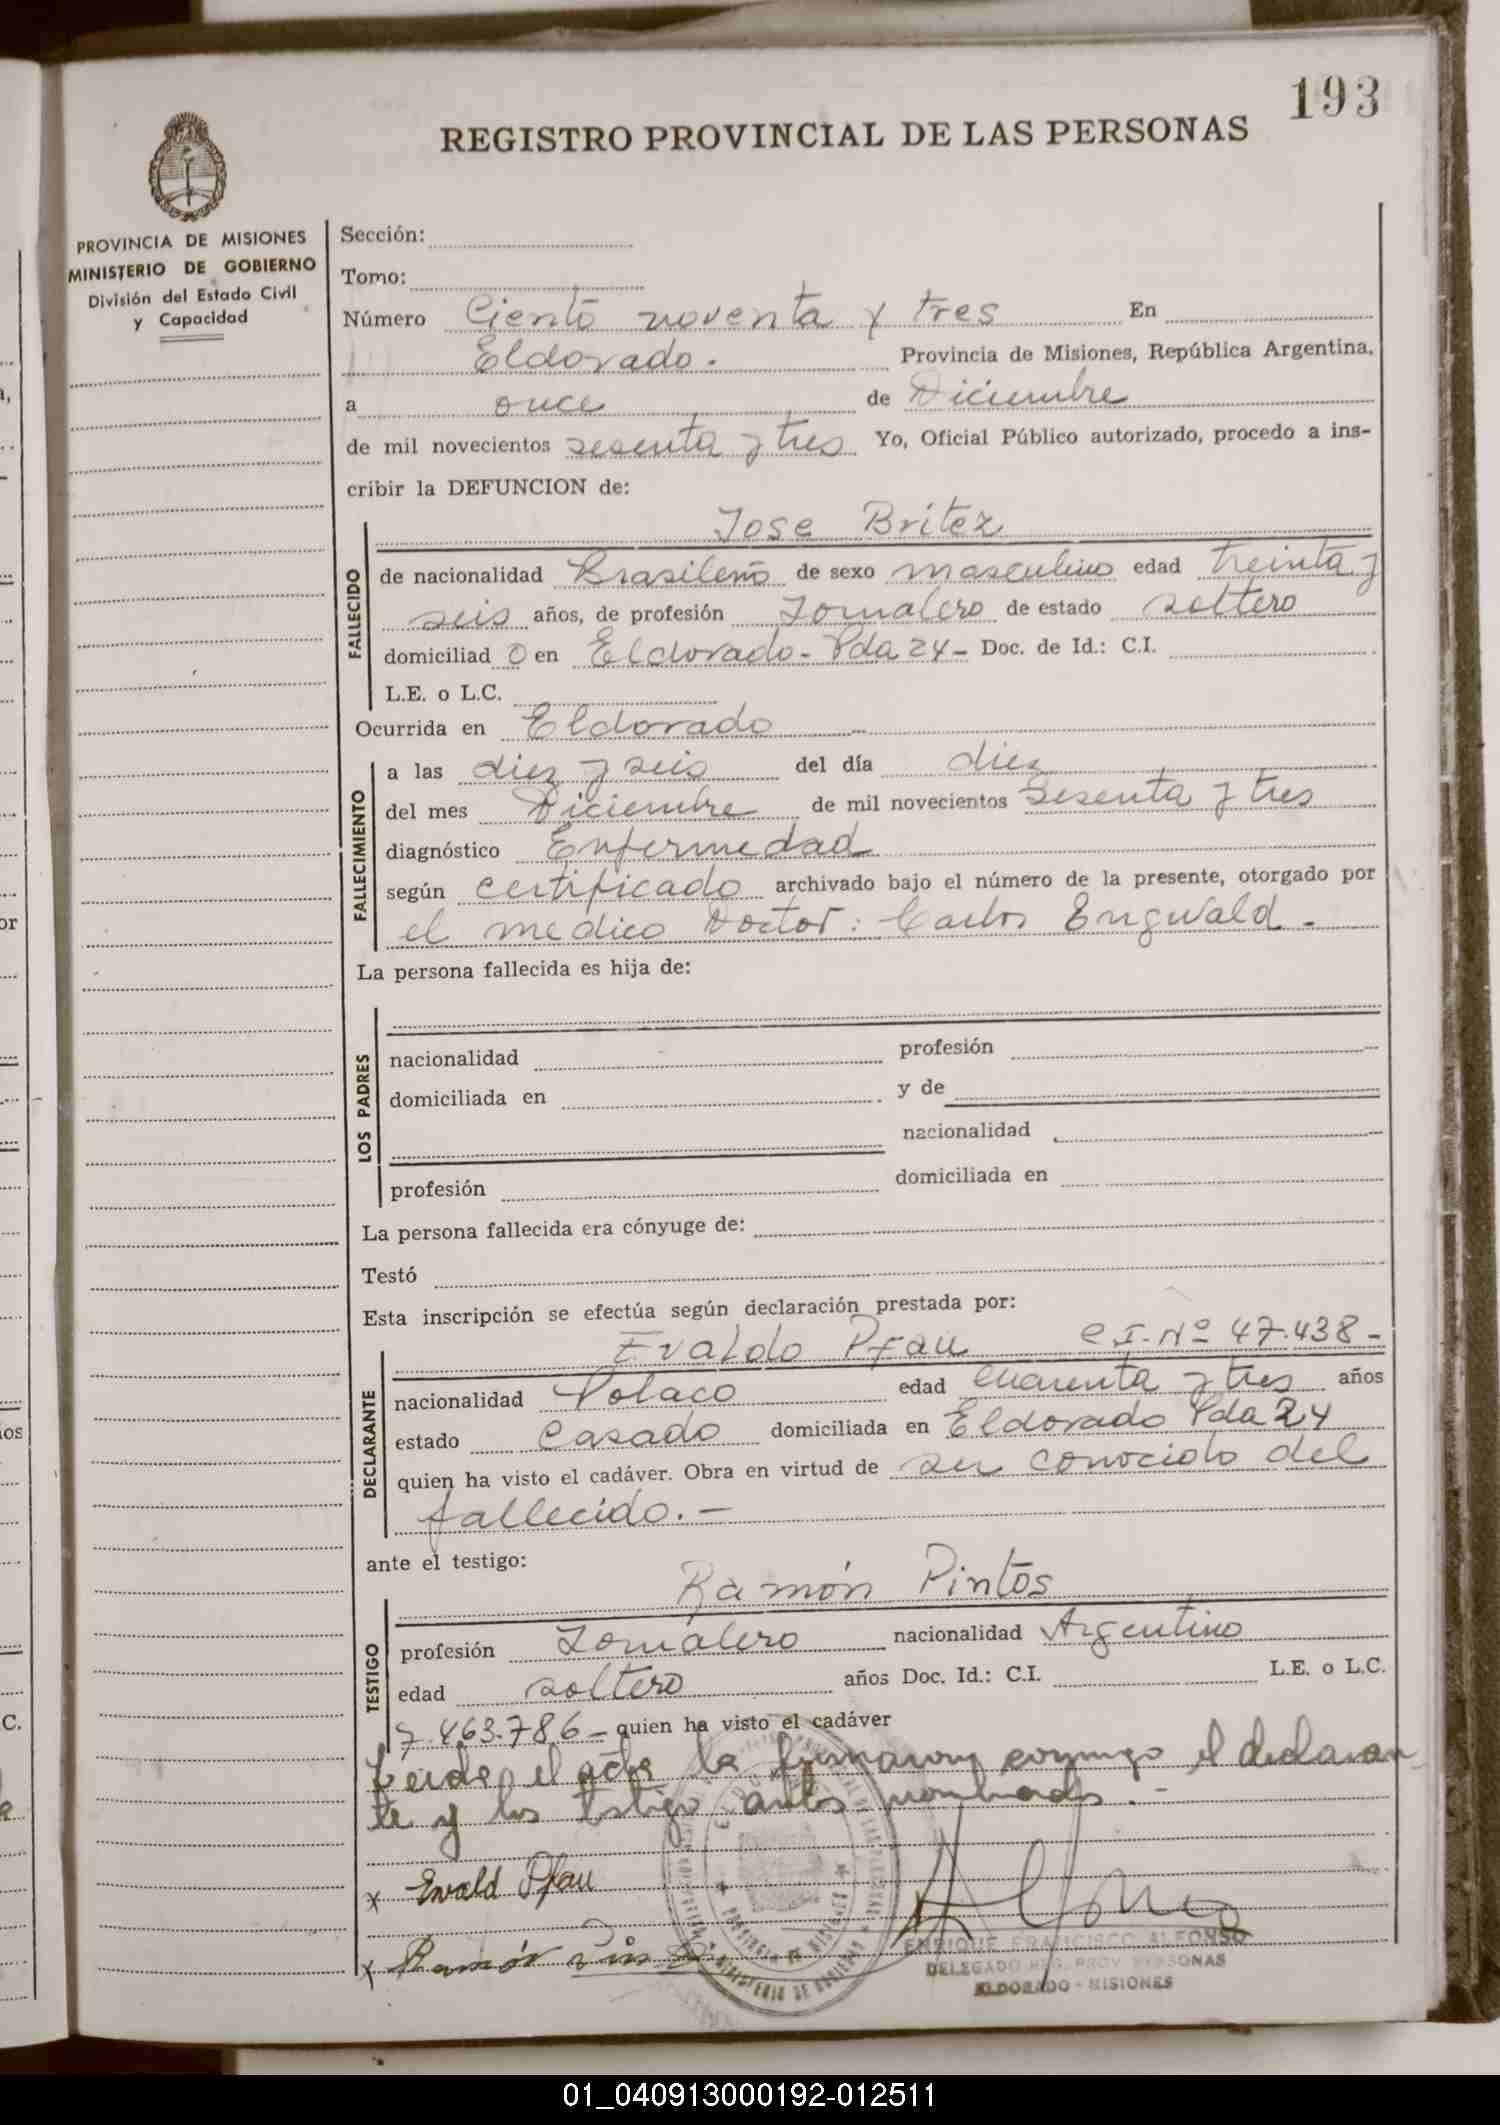 193
REGISTRO PROVINCIAL DE LAS PERSONAS
PROVINCIA DE MISIONES
MINISTERIO DE GOBIERNO
División del Estado Civil
y Capacidad
Sección:
Tomo:
Número Ciento noventa y tres En
Eldorado. Provincia de Misiones, República Argentina,
a once de Diciembre
de mil novecientos sesenta y tres Yo, Oficial Público autorizado, procedo a ins-
cribir la DEFUNCION de:
Jose Britez
FALLECIDO
de nacionalidad Brasileño de sexo masculino edad treinta y
seis años, de profesión Jornalero de estado soltero
domiciliad o en Eldorado - Pda 24 - Doc. de Id.: C.I.
L.E. o L.C.
Ocurrida en Eldorado
FALLECIMIENTO
a las diez y seis del día diez
del mes Diciembre de mil novecientos sesenta y tres
diagnóstico Enfermedad
según certificado archivado bajo el número de la presente, otorgado por
el medico Doctor: Carlos Engwald.
La persona fallecida es hija de:
LOS PADRES
nacionalidad profesión
domiciliada en y de
nacionalidad
profesión domiciliada en
La persona fallecida era cónyuge de:
Testó
Esta inscripción se efectúa según declaración prestada por:
Evaldo Pfau C.I. Nº 47.438 -
DECLARANTE
nacionalidad Polaco edad cuarenta y tres años
estado Casado domiciliada en Eldorado Pda 24
quien ha visto el cadáver. Obra en virtud de ser conocido del
fallecido. -
ante el testigo:
Ramón Pintos
TESTIGO
profesión Jornalero nacionalidad Argentino
edad soltero años Doc. Id.: C.I. L.E. o L.C.
7.463.786 - quien ha visto el cadáver
Leida el acta la firmaron conmigo el declaran-
te y los testigo antes nombrados. -
x Ewald Pfau
x Ramón
PROVINCIA DE MISIONES
MINISTERIO DE GOBIERNO
ENRIQUE FRANCISCO ALFONSO
DELEGADO REG. PROV. PERSONAS
ELDORADO - MISIONES
01_040913000192-012511